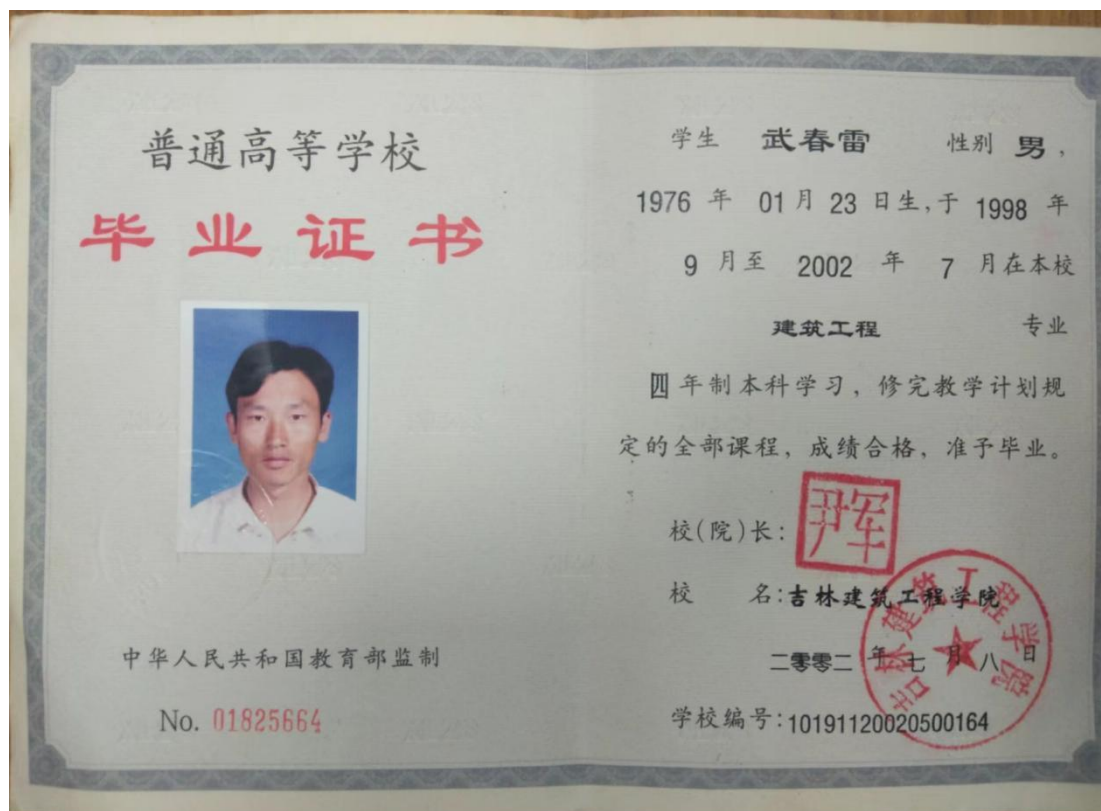 普通高等学校
毕业证书
中华人民共和国教育部监制
No. 01825664
学生 武春雷 性别 男，
1976 年 01 月 23 日生，于 1998 年
9 月至 2002 年 7 月在本校
建筑工程 专业
四年制本科学习，修完教学计划规
定的全部课程，成绩合格，准予毕业。
校(院)长：
尹军
校 名：吉林建筑工程学院
二零零二 年 七 月 八 日
吉林建筑工程学院
学校编号：10191120020500164